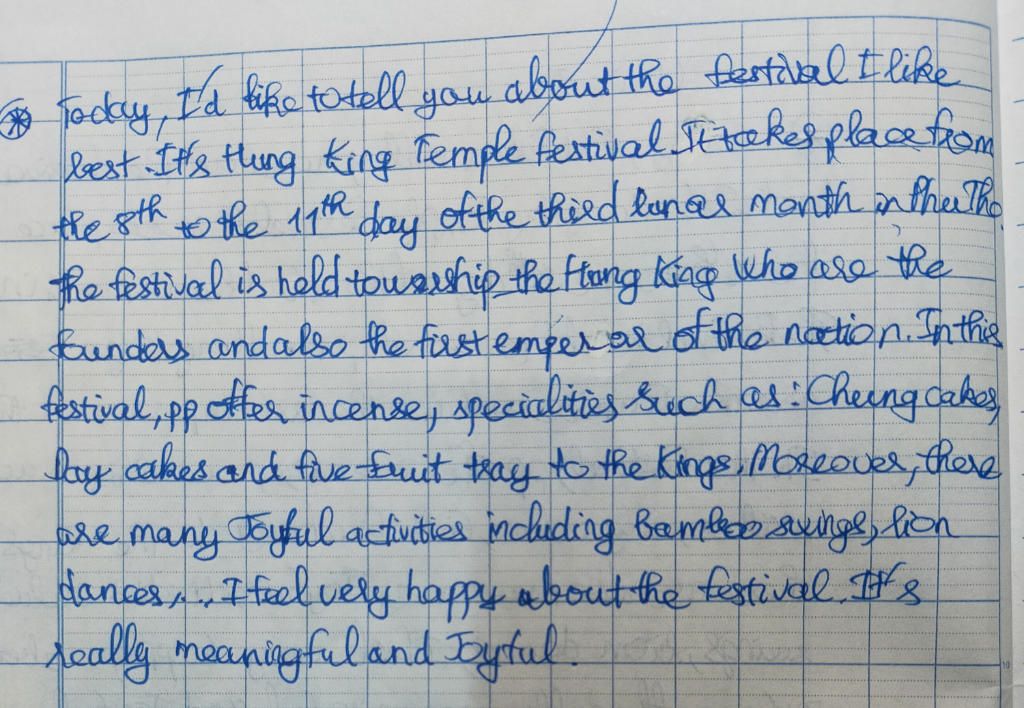 * Today, I'd like to tell you about the festival I like
best. It's Hung King Temple festival. It takes place from
the 8th to the 11th day of the third lunar month in Phu Tho.
the festival is held to worship the Hung King who are the
founders and also the first emperor of the nation. In this
festival, pp offer incense, specialities such as: Chung cakes,
Day cakes and five fruit tray to the Kings. Moreover, there
are many Joyful activities including Bamboo swings, lion
dances,... I feel very happy about the festival. It's
really meaningful and Joyful.